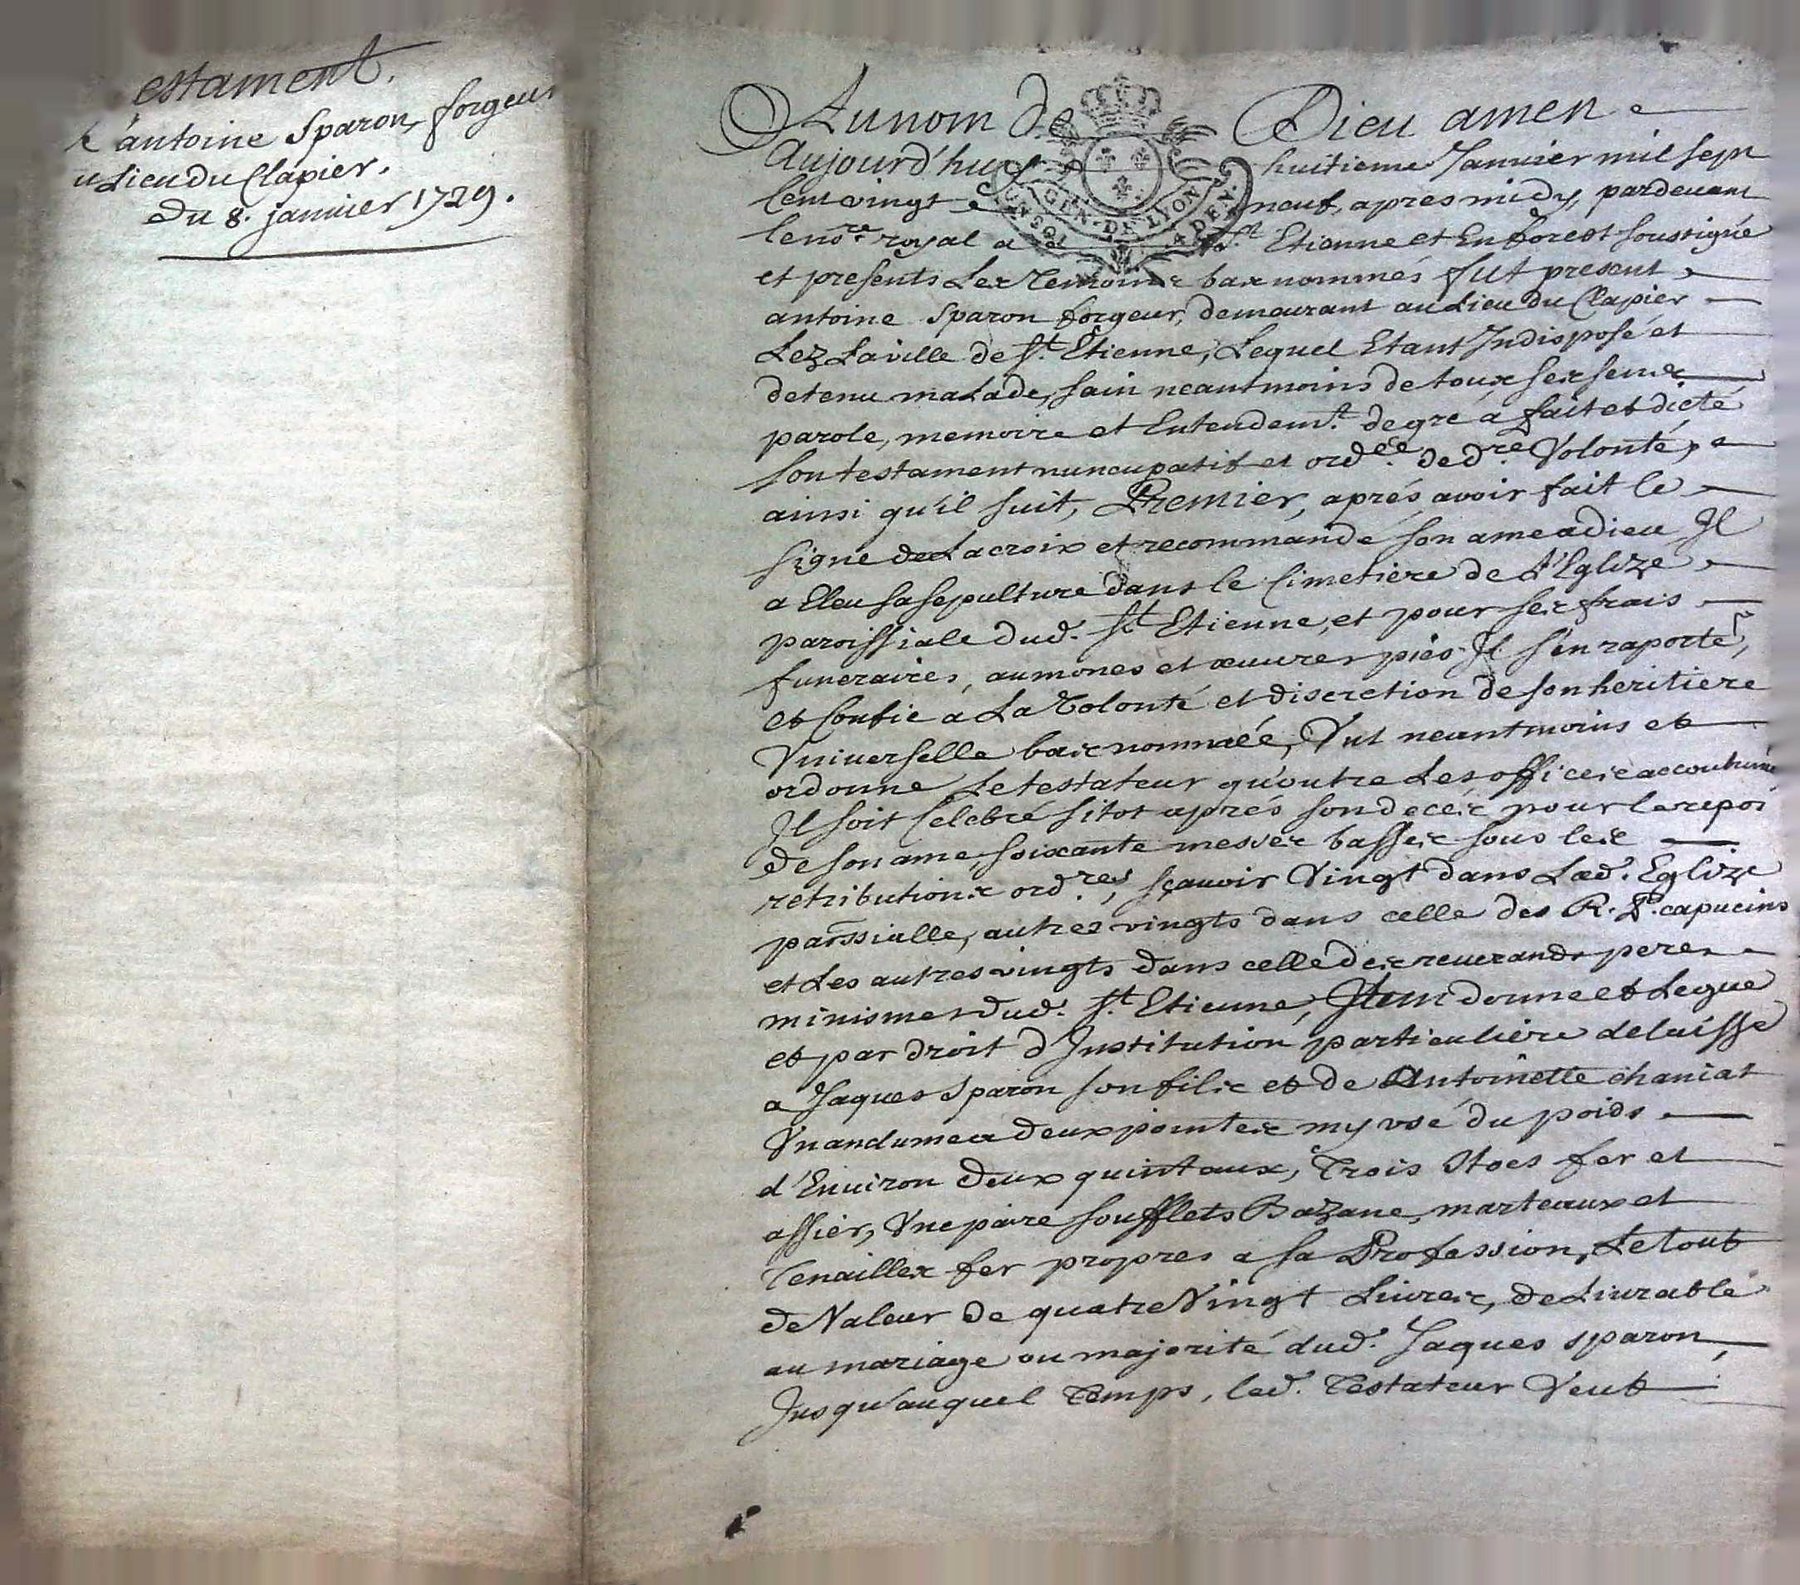 estament.
antoine Sparon, forgeur
u Lieu du Clapier.
Du 8. janvier 1729.
Au nom de Dieu amen
Aujourd'huy huitieme Janvier mil sept
Cent vingt neuf, apres midy, pardevant
le no.re royal a St Etienne et En forest soussigné
et presents Les Temoins bas nommés fut present
antoine Sparon forgeur, demeurant au Lieu du Clapier
Lez La ville de St. Etienne, Lequel Etant Indisposé et
detenu malade, sain neantmoins de toux ses sens
parole, memoire et Entendem.t de gré a fait et dicté
son testament nuncupatif et ord.ée de d.re Volonté,
ainsi qu'il suit, Premier, aprés avoir fait le
signe de La croix et recommandé son ame a dieu Il
a Eleu sa sepulture dans le Cimetiere de L'Eglize
paroissiale dud. St Etienne, et pour ses frais
funeraires, aumones et œuvres pies Il s'en raporte,
et Confie a La Volonté et discretion de son heritiere
Vniverselle bas nommée, Vut neantmoins et
ordonne Le testateur qu'outre Les offices accoutumé
Il soit Celebré sitot aprés son decés pour le repos
de son ame soixante messes basses sous les
retributions ord.res, sçavoir Vingt dans Lad. Eglize
parssialle, autres vingts dans celle des R. P. capucins
et Les autres vingts dans celle des reverands peres
minismes dud. St. Etienne, Item donne et Legue
et par droit d'Institution particuliere delaisse
a Jaques Sparon son fils et de Antoinette chaniat
Vn andume a deux pointes my vsé du poids
d'Environ deux quintaux, Trois Stoes fer et
assier, Vne paire soufflets Bazane, marteaux et
Tenailles fer propres a sa Profession, Le tout
de Valeur de quatre Vingt Livres, de Livrable
au mariage ou majorité dud. Jaques Sparon,
Jusqu'auquel Temps, led. Testateur Veut
GEN. DE LYON
4 DEN.